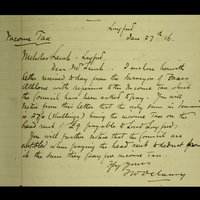 Longford
Jan 27th 16.
Income Tax
Nicholas Lamb - Longford
Dear Mr Lamb. I enclose herewith
letter received to-day from the Surveyor of Taxes
Athlone with reference to the Income tax which
the Council have been asked to pay. You will
notice from this letter that the only sum in
is 27/- (shillings) being the income tax on the
head rent of £9 payable to Lord Longford.
You will further notice that the Council are
entitled when paying the head rent to deduct from
it the sum they pay for income tax.
Yrs truly